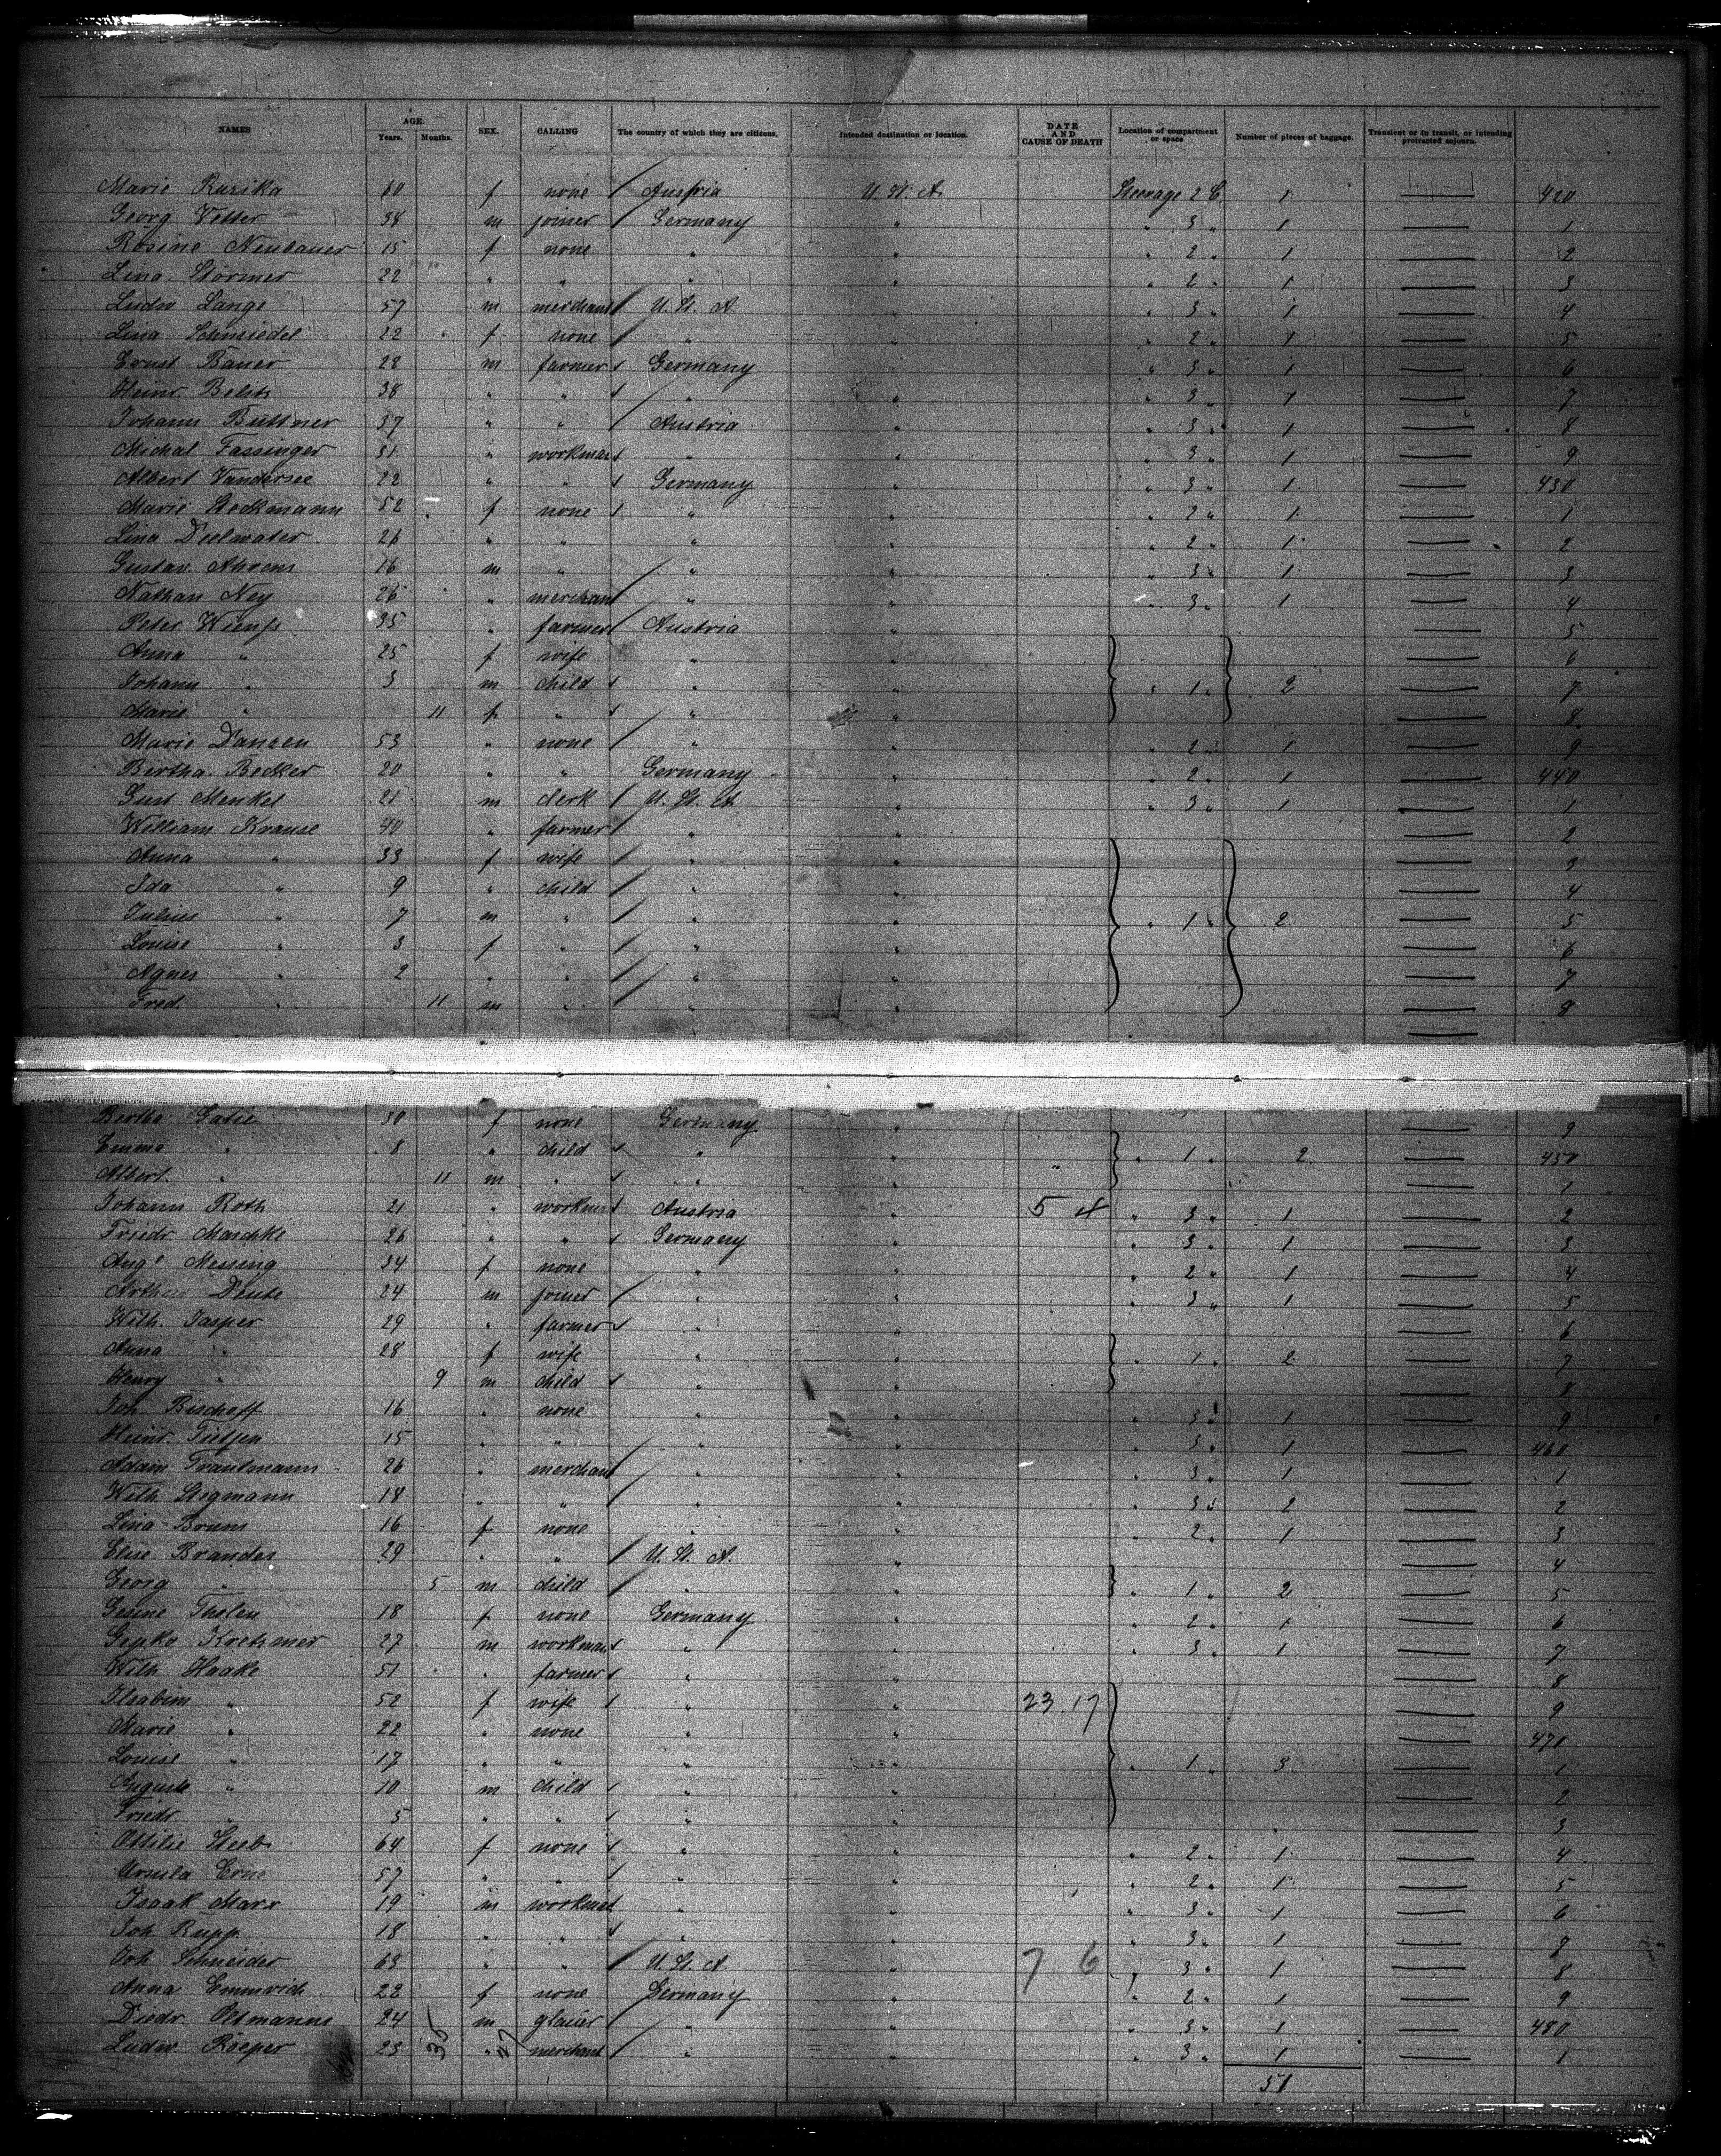 NAMES AGE. Years. Months. SEX. CALLING The country of which they are citizens. Intended destination or location. DATE AND CAUSE OF DEATH Location of compartment or space Number of pieces of baggage. Transient or in transit, or intending protracted sojourn.
Marie Rusika 60 f none Austria U. St. A. Steerage 2 C 1 — 420
Georg Vetter 38 m joiner Germany " " 3 " 1 — 1
Rosine Neubauer 15 f none " " " 2 " 1 — 2
Lina Stormer 22 " " " " " 2 " 1 — 3
Ludw Lange 57 m merchant U. St. A " " 3 " 1 — 4
Lina Schmiedel 22 f none " " " 2 " 1 — 5
Ernst Bauer 28 m farmer Germany " " 3 " 1 — 6
Heinr. 38 " " " " " 3 " 1 — 7
Johann Büttner 37 " " Austria " " 3 " 1 — 8
Michal Fassinger 31 " workman " " " 3 " 1 — 9
Albert Vandersee 22 " " Germany " " 3 " 1 — 430
Marie Stockmann 52 f none " " " 2 " 1 — 1
Lina Deelwater 26 " " " " " 2 " 1 — 2
Gustav Ahrens 16 m " " " " 3 " 1 — 3
Nathan Ney 26 " merchant " " " 3 " 1 — 4
Peter 35 " farmer Austria " — 5
Anna " 25 f wife " " — 6
Johann " 3 m child " " " 1 " 2 — 7
Marie " 11 f " " " — 8
Marie Janzen 53 " none " " " 2 " 1 — 9
Bertha Becker 20 " " Germany " " 2 " 1 — 440
Gust Menkel 21 m clerk U. St. A " " 3 " 1 — 1
William Krause 40 " farmer " " — 2
Anna " 33 f wife " " — 3
Ida " 9 " child " " — 4
Julius " 7 m " " " " 1 " 2 — 5
Louise " 3 f " " " — 6
Agnes " 2 " " " " — 7
Fred. " 11 m " " " — 8
Bertha 30 f none Germany " — 9
Emma " 8 " child " " " " 1 " 2 — 450
Albert " 11 m " " " — 1
Johann Roth 21 " workman Austria " 5 4 " 3 " 1 — 2
Friedr Maschke 26 " " Germany " " 3 " 1 — 3
Augᵉ Messing 34 f none " " " 2 " 1 — 4
Arthur 24 m joiner " " " 3 " 1 — 5
Wilh. Jasper 29 " farmer " " — 6
Anna " 28 f wife " " " 1 " 2 — 7
Henry " 9 m child " " — 8
Joh Bischoff 16 " none " " " 3 " 1 — 9
Heinr. Tietjen 15 " " " " " 3 " 1 — 460
Adam Trautmann 26 " merchant " " " 3 " 1 — 1
Wilh Stegmann 18 " " " " " 3 " 2 — 2
Lina Bruns 16 f none " " " 2 " 1 — 3
Elise Brandes 29 " " U. St. A. " — 4
Georg " 5 m child " " " 1 " 2 — 5
Gesine Tholen 18 f none Germany " " 2 " 1 — 6
Kretzmer 27 m workman " " " 3 " 1 — 7
Wilh Haake 51 " farmer " " — 8
Ilsabein " 52 f wife " " 23.17 — 9
Marie " 22 " none " " — 470
Louise " 17 " " " " " 1 " 3 — 1
August " 10 m child " " — 2
Friedr " 5 " " " " — 3
Ottilie Steeb 64 f none " " " 2 " 1 — 4
Ursula 57 " " " " " 2 " 1 — 5
Isaak Marx 19 m workman " " " 3 " 1 — 6
Joh Rupp 18 " " " " " 3 " 1 — 7
Joh Schneider 63 " " U. St. A " 7 6 " 3 " 1 — 8
Anna Emmrich 22 f none Germany " " 2 " 1 — 9
Diedr. Oltmanns 24 m " " " 3 " 1 — 480
Ludw. Roeper 23 35 " 27 merchant " " " 3 " 1 — 1
51